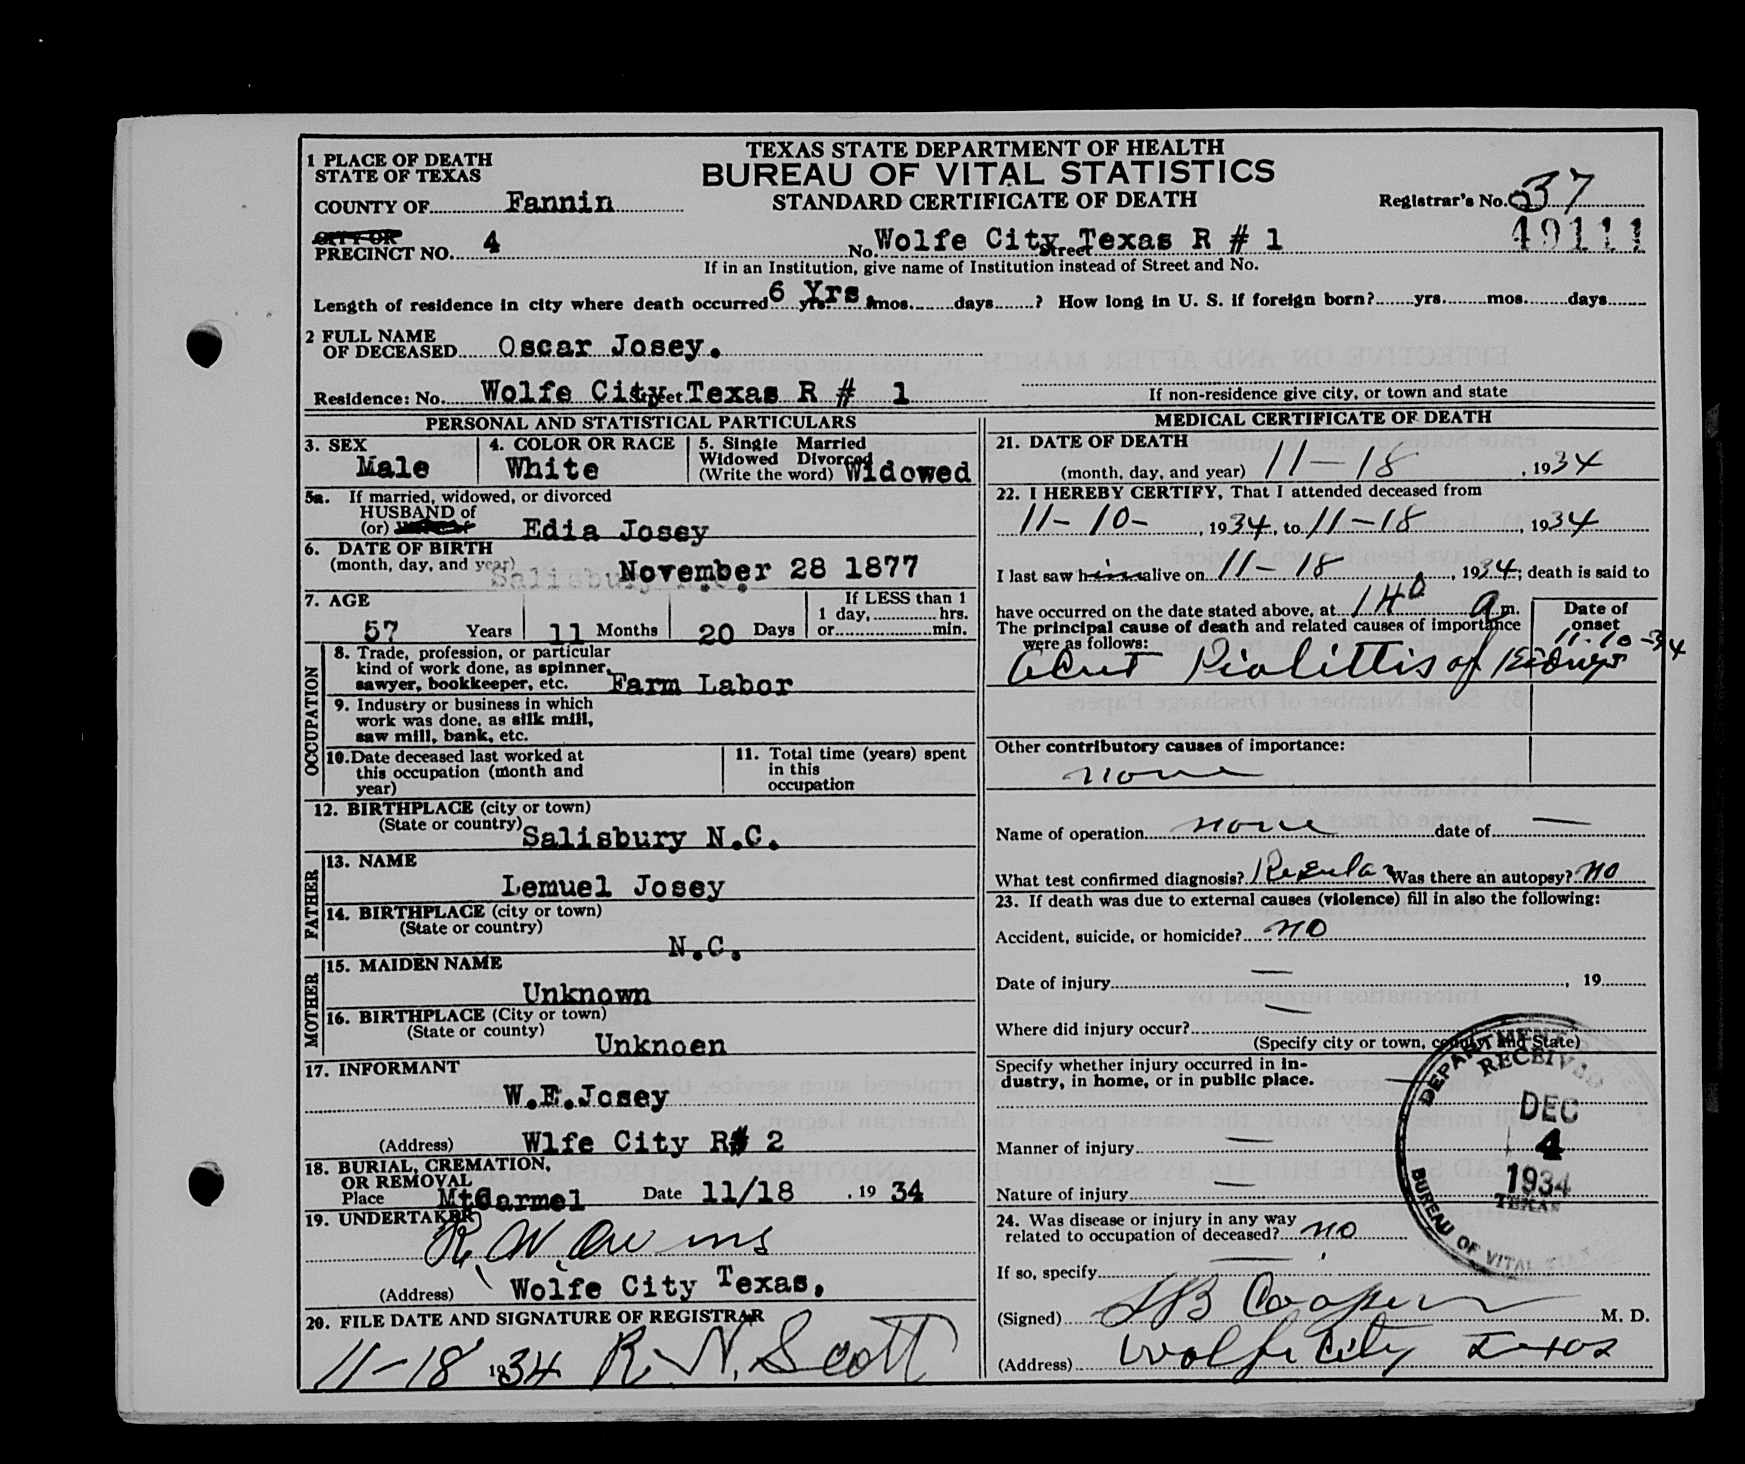 TEXAS STATE DEPARTMENT OF HEALTH
BUREAU OF VITAL STATISTICS
STANDARD CERTIFICATE OF DEATH
1 PLACE OF DEATH
STATE OF TEXAS
COUNTY OF Fannin
Registrar's No. 37
49111
CITY OR
PRECINCT NO. 4 No. Wolfe City Street Texas R # 1
If in an Institution, give name of Institution instead of Street and No.
Length of residence in city where death occurred 6 yrs. Yrs. mos. days ? How long in U. S. if foreign born? yrs. mos. days
2 FULL NAME
OF DECEASED Oscar Josey.
Residence: No. Wolfe City Street Texas R # 1
If non-residence give city, or town and state
PERSONAL AND STATISTICAL PARTICULARS
3. SEX Male
4. COLOR OR RACE White
5. Single Married
Widowed Divorced
(Write the word) Widowed
5a. If married, widowed, or divorced
HUSBAND of
(or) Edia Josey
6. DATE OF BIRTH
(month, day, and year) Salisbury N.C. November 28 1877
7. AGE 57 Years 11 Months 20 Days
If LESS than 1
1 day, hrs.
or min.
OCCUPATION
8. Trade, profession, or particular
kind of work done, as spinner,
sawyer, bookkeeper, etc. Farm Labor
9. Industry or business in which
work was done, as silk mill,
saw mill, bank, etc.
10. Date deceased last worked at
this occupation (month and
year)
11. Total time (years) spent
in this
occupation
12. BIRTHPLACE (city or town)
(State or country) Salisbury N.C.
FATHER
13. NAME
Lemuel Josey
14. BIRTHPLACE (city or town)
(State or country)
N.C.
MOTHER
15. MAIDEN NAME
Unknown
16. BIRTHPLACE (City or town)
(State or county)
Unknoen
17. INFORMANT
W.E.Josey
(Address) Wlfe City R# 2
18. BURIAL, CREMATION,
OR REMOVAL
Place MtCarmel Date 11/18 , 19 34
19. UNDERTAKER
R. W. Owens
(Address) Wolfe City Texas.
20. FILE DATE AND SIGNATURE OF REGISTRAR
11-18 1934 R. N. Scott
MEDICAL CERTIFICATE OF DEATH
21. DATE OF DEATH
(month, day, and year) 11-18 , 1934
22. I HEREBY CERTIFY, That I attended deceased from
11-10- , 1934, to 11-18 , 1934
I last saw him alive on 11-18 , 1934; death is said to
have occurred on the date stated above, at 140 a m.
The principal cause of death and related causes of importance
were as follows:
Date of
onset
11-10-34
Acut Pialittis of Kidneys
Other contributory causes of importance:
none
Name of operation none date of —
What test confirmed diagnosis? Regular Was there an autopsy? no
23. If death was due to external causes (violence) fill in also the following:
Accident, suicide, or homicide? no
Date of injury — , 19
Where did injury occur? —
(Specify city or town, county, and State)
Specify whether injury occurred in in-
dustry, in home, or in public place. —
Manner of injury —
Nature of injury —
24. Was disease or injury in any way
related to occupation of deceased? no
If so, specify —
(Signed) Cooper M. D.
(Address) Wolfe City Texas
DEPARTMENT OF
RECEIVED
DEC
4
1934
TEXAS
BUREAU OF VITAL